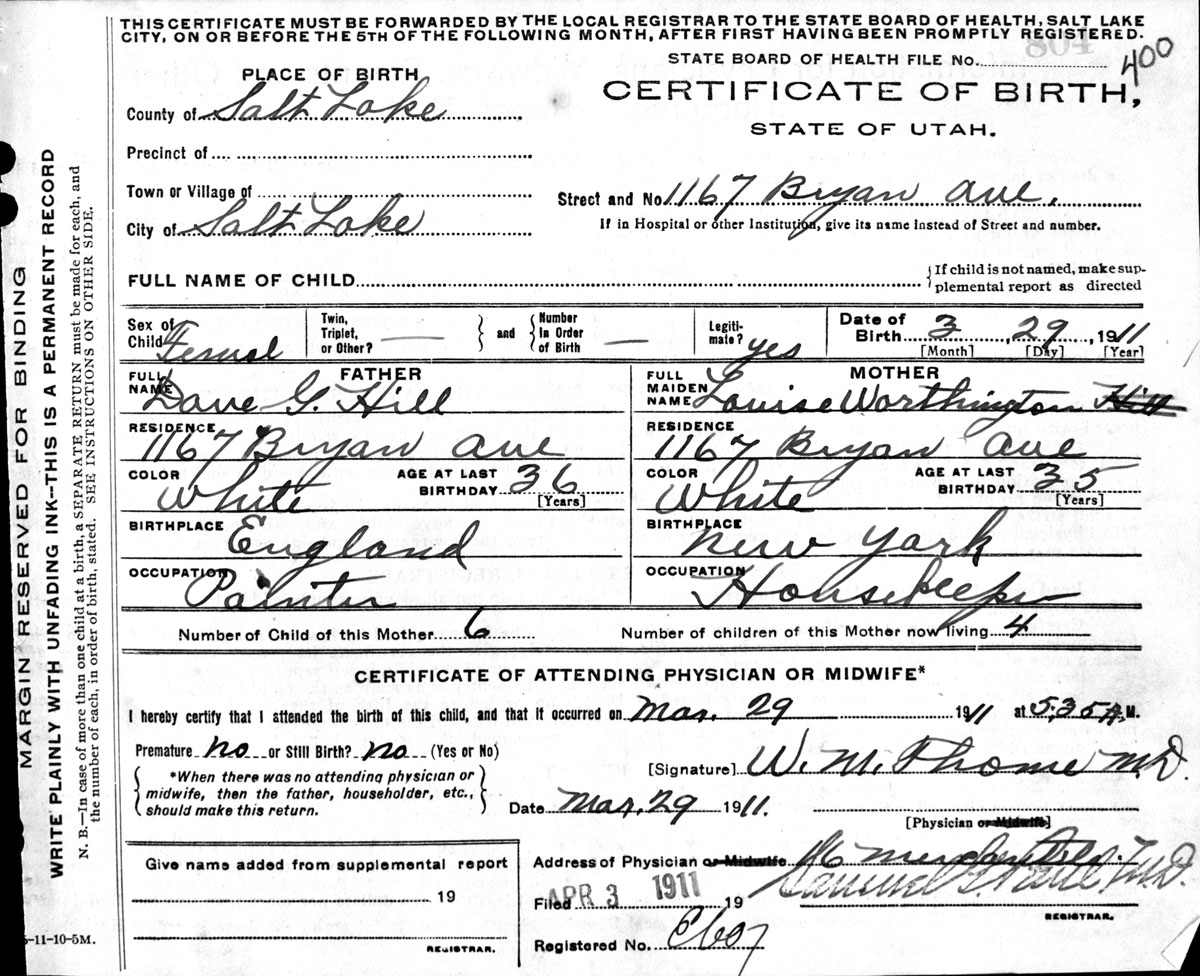 THIS CERTIFICATE MUST BE FORWARDED BY THE LOCAL REGISTRAR TO THE STATE BOARD OF HEALTH, SALT LAKE
CITY, ON OR BEFORE THE 5TH OF THE FOLLOWING MONTH, AFTER FIRST HAVING BEEN PROMPTLY REGISTERED.
STATE BOARD OF HEALTH FILE No. 400
PLACE OF BIRTH
CERTIFICATE OF BIRTH,
County of Salt Lake
STATE OF UTAH.
Precinct of
Town or Village of
Street and No 1167 Bryan Ave.
City of Salt Lake
If in Hospital or other Institution, give its name Instead of Street and number.
FULL NAME OF CHILD
{If child is not named, make sup-
plemental report as directed
Sex of Child Femal
Twin, Triplet, or Other? —
and
Number In Order of Birth —
Legiti-mate? yes
Date of Birth 3, 29, 1911
[Month] [Day] [Year]
FATHER
FULL NAME Dave G. Hill
RESIDENCE 1167 Bryan Ave
COLOR White AGE AT LAST BIRTHDAY 36 [Years]
BIRTHPLACE England
OCCUPATION Painter
MOTHER
FULL MAIDEN NAME Louise Worthington Hill
RESIDENCE 1167 Bryan Ave
COLOR White AGE AT LAST BIRTHDAY 35 [Years]
BIRTHPLACE New York
OCCUPATION Housekeeper
Number of Child of this Mother 6 Number of children of this Mother now living 4
CERTIFICATE OF ATTENDING PHYSICIAN OR MIDWIFE*
I hereby certify that I attended the birth of this child, and that it occurred on Mar. 29 1911 at 5:35 A.M.
Premature no or Still Birth? no (Yes or No)
*When there was no attending physician or
midwife, then the father, householder, etc.,
should make this return.
[Signature] W. M. Thome M.D.
Date Mar. 29 1911.
[Physician or Midwife]
Give name added from supplemental report
19
REGISTRAR.
Address of Physician or Midwife
Filed APR 3 1911 19
M.D.
REGISTRAR.
Registered No.
-11-10-5M.
MARGIN RESERVED FOR BINDING
WRITE PLAINLY WITH UNFADING INK--THIS IS A PERMANENT RECORD
N. B.—In case of more than one child at a birth, a SEPARATE RETURN must be made for each, and
the number of each, in order of birth, stated. SEE INSTRUCTIONS ON OTHER SIDE.